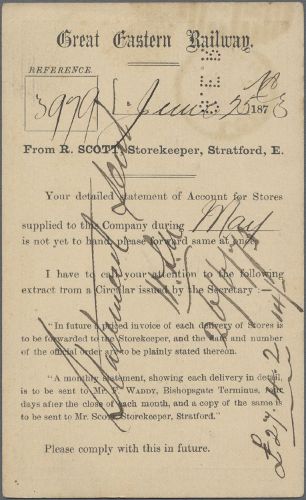 Great Eastern Railway.
REFERENCE.
3979
June 25 1878
From R. SCOTT, Storekeeper, Stratford, E.
Your detailed statement of Account for Stores
supplied to this Company during May
is not yet to hand, please forward same at once.
I have to call your attention to the following
extract from a Circular issued by the Secretary :—
"In future a priced invoice of each delivery of Stores is
to be forwarded to the Storekeeper, and the date and number
of the official order are to be plainly stated thereon.
"A monthly statement, showing each delivery in detail,
is to be sent to Mr. WADDY, Bishopsgate Terminus, four
days after the close of each month, and a copy of the same is
to be sent to Mr. Scott, Storekeeper, Stratford."
Please comply with this in future.
Statement